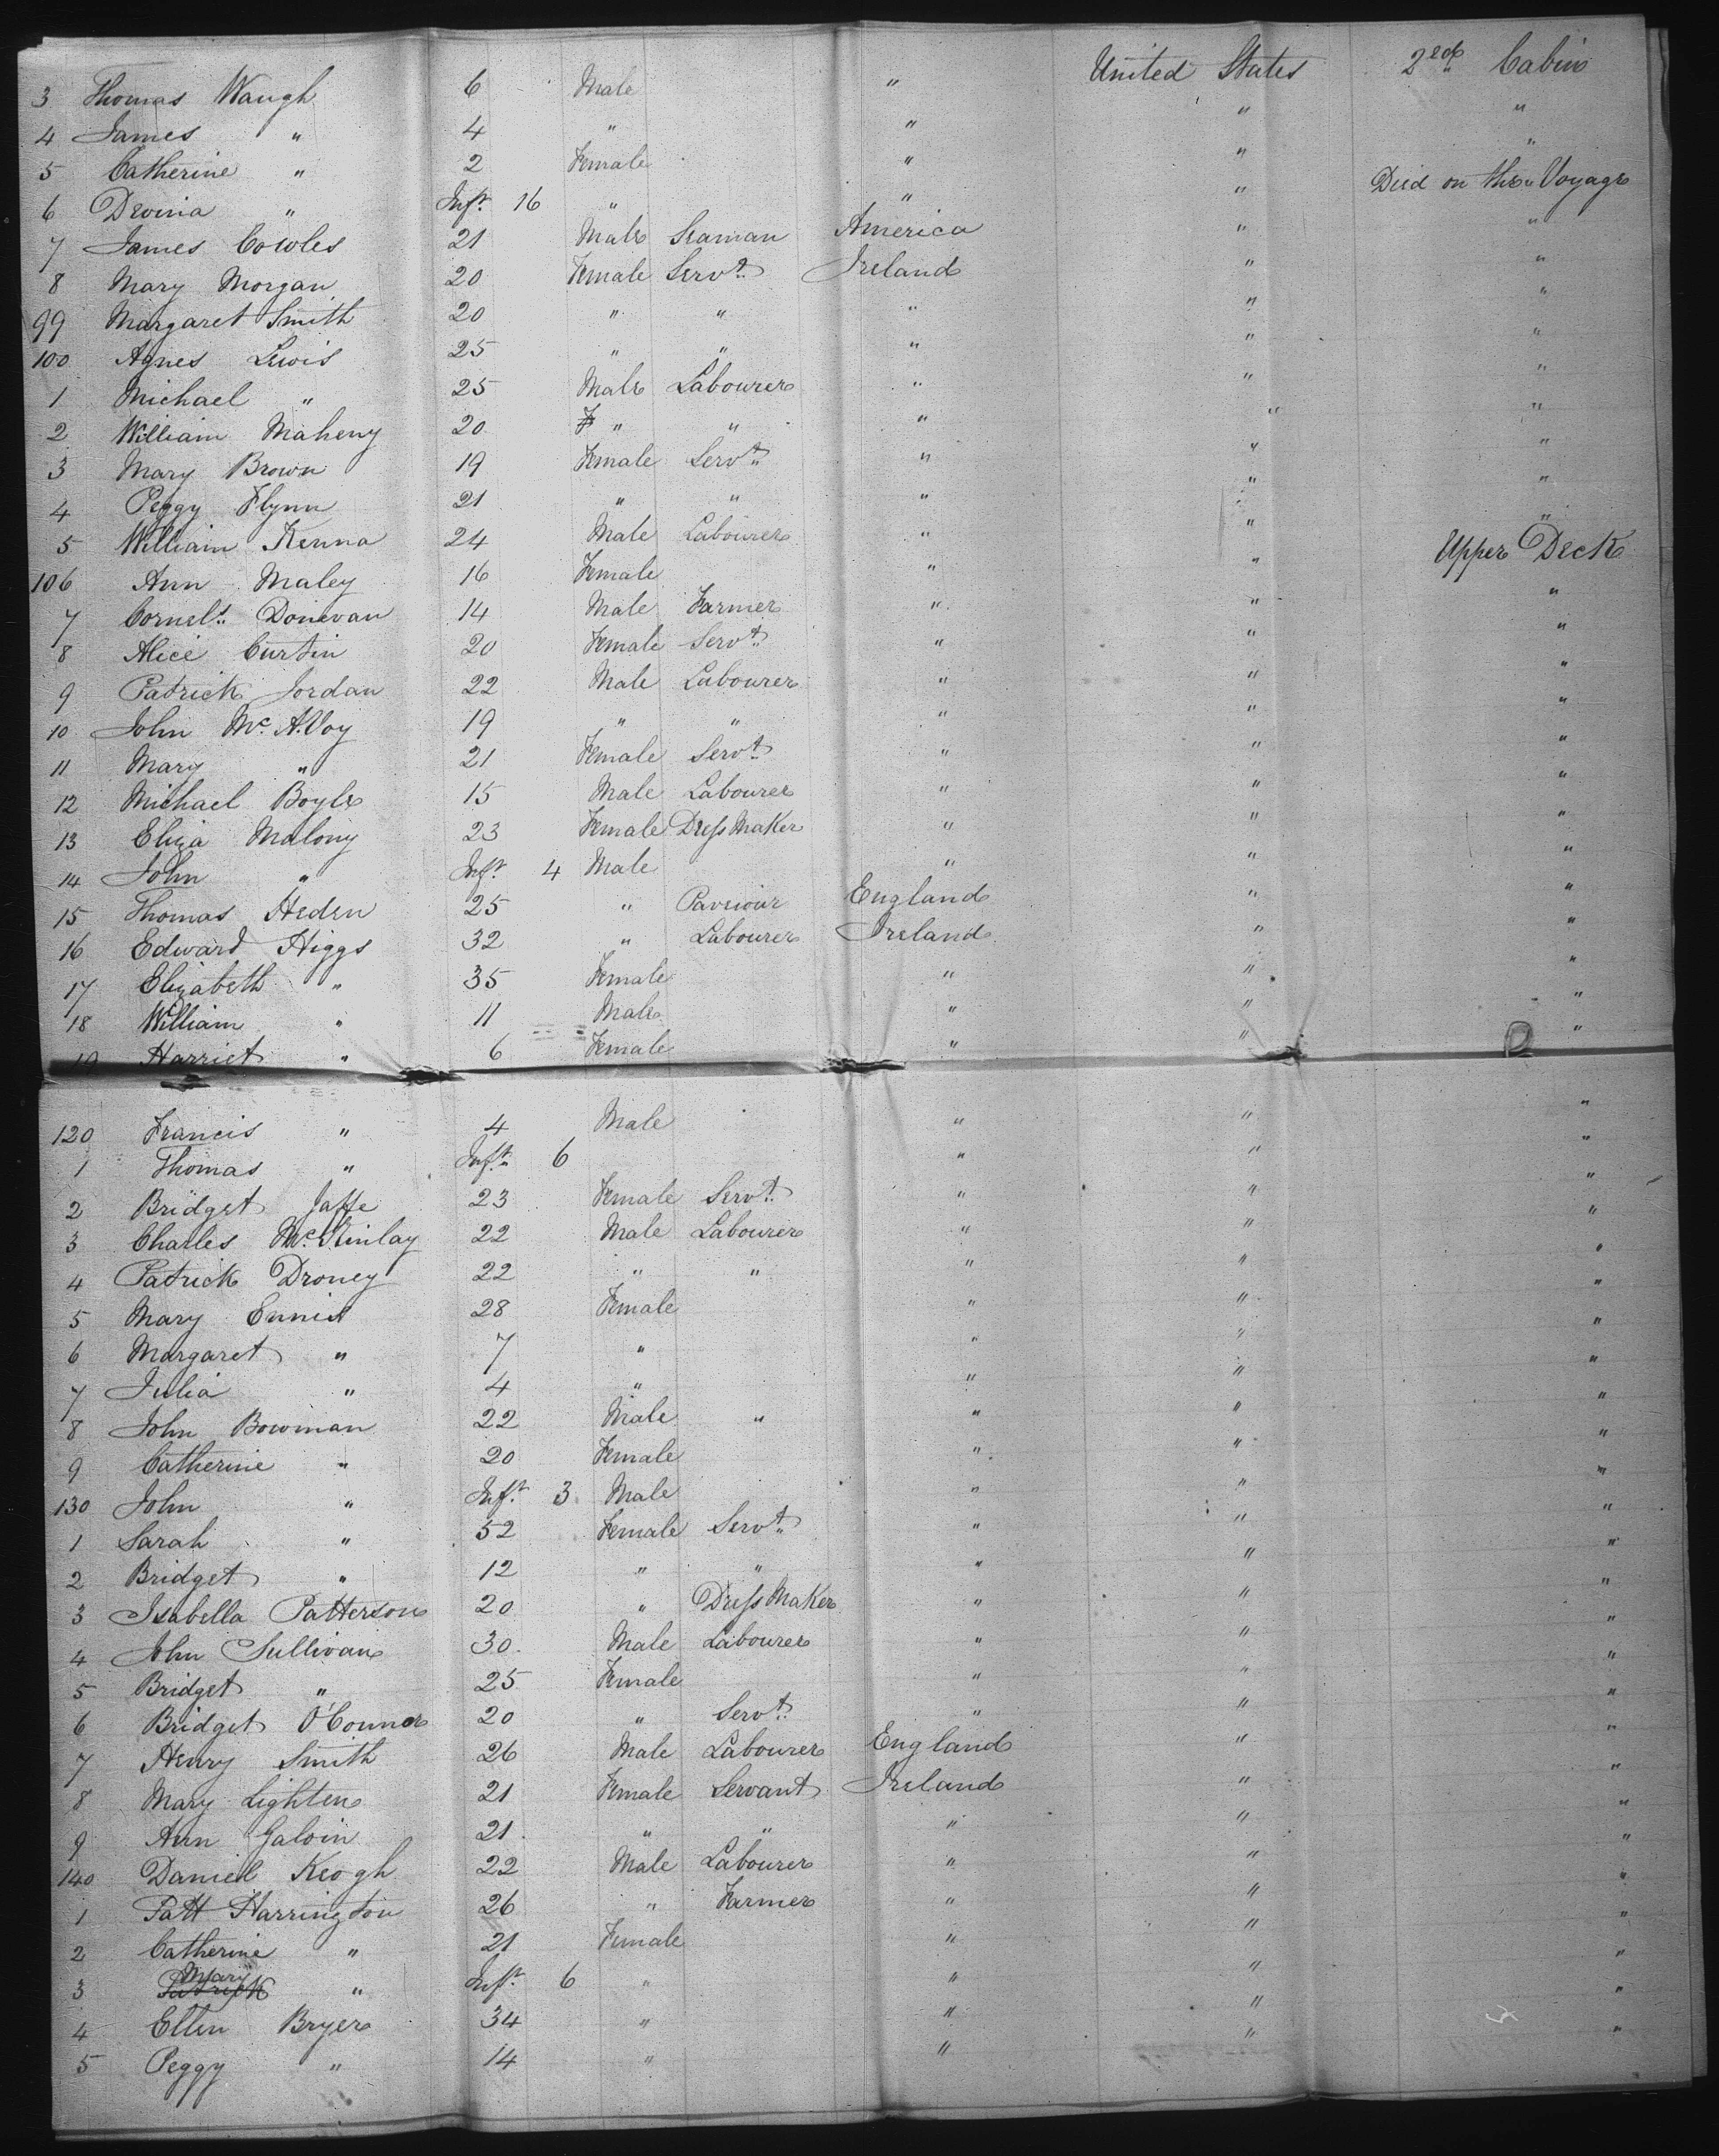 3 Thomas Waugh 6 Male " United States 2nd Cabin
4 James " 4 " " " "
5 Catherine " 2 Female " " "
6 " Inft. 16 " " " Died on the Voyage
7 James Cowles 21 Male Seaman America " "
8 Mary Morgan 20 Female Servt. Ireland " "
99 Margaret Smith 20 " " " " "
100 Agnes Lewis 25 " " " " "
1 Michael " 25 Male Labourer " " "
2 William Maheny 20 " " " " "
3 Mary Brown 19 Female Servt. " " "
4 Peggy Flynn 21 " " " " "
5 William Kenna 24 Male Labourer " " "
106 Ann Maley 16 Female " " Upper Deck
7 Cornels. Donevan 14 Male Farmer " " "
8 Alice Curtin 20 Female Servt. " " "
9 Patrick Jordan 22 Male Labourer " " "
10 John Mc.A.Voy 19 " " " " "
11 Mary " 21 Female Servt " " "
12 Michael Boyle 15 Male Labourer " " "
13 Eliza Malony 23 Female Dress Maker " " "
14 John " Inft. 4 Male " " "
15 Thomas Heden 25 " Paveiour England " "
16 Edward Higgs 32 " Labourer Ireland " "
17 Elizabeth " 35 Female " " "
18 William " 11 Male " " "
19 Harriet " 6 Female " " "
120 Francis " 4 Male " " "
1 Thomas " Inft. 6 " " "
2 Bridget Jaffe 23 Female Servt. " " "
3 Charles Mc.Kinlay 22 Male Labourer " " "
4 Patrick Droney 22 " " " " "
5 Mary Ennis 28 Female " " "
6 Margaret " 7 " " " "
7 Julia " 4 " " " "
8 John Bowman 22 Male " " " "
9 Catherine " 20 Female " " "
130 John " Inft. 3 Male " " "
1 Sarah " 52 Female Servt. " " "
2 Bridget " 12 " " " " "
3 Isabella Patterson 20 " Dress Maker " " "
4 John Sullivan 30 Male Labourer " " "
5 Bridget " 25 Female " " "
6 Bridget O'Connor 20 " Servt. " " "
7 Henry Smith 26 Male Labourer England " "
8 Mary Lighten 21 Female Servant Ireland " "
9 Ann Galvin 21 " " " " "
140 Daniel Keogh 22 Male Labourer " " "
1 Patt Harrington 26 " Farmer " " "
2 Catherine " 21 Female " " "
3 Patrick Mary " Inft. 6 " " " "
4 Ellen Bryer 34 " " " "
5 Peggy " 14 " " " "